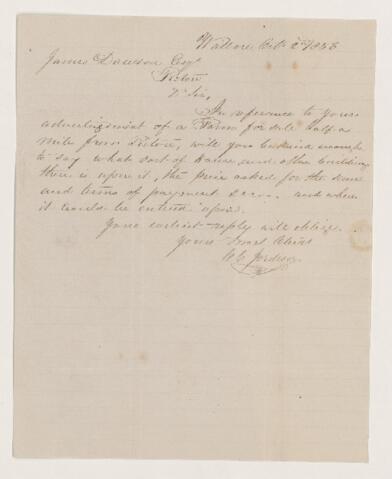 Wallace Oct 2nd 1858
James Dawson Esqr
Pictou
Dr Sir,
In reference to your
advertisement of a Farm for sale half a
mile from Pictou, will you be kind enough
to say what sort of house and other buildings
there is upon it, the price asked for the same
and terms of payment &c. and when
it could be entered upon.
Your earliest reply will oblige
Yours